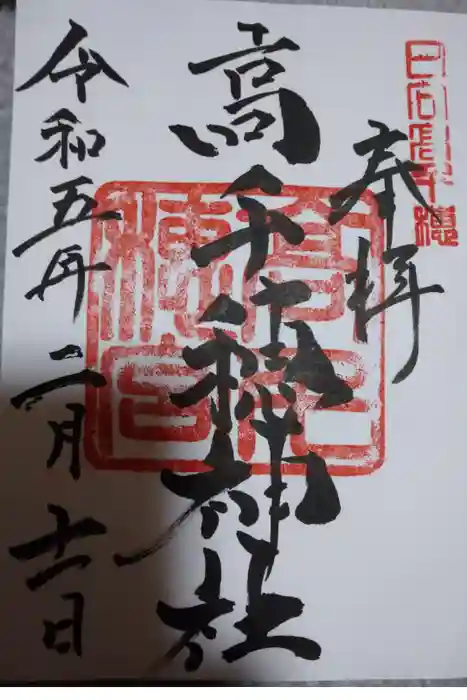 日向高千穂
奉拝
高千穂神社
令和五年二月十一日